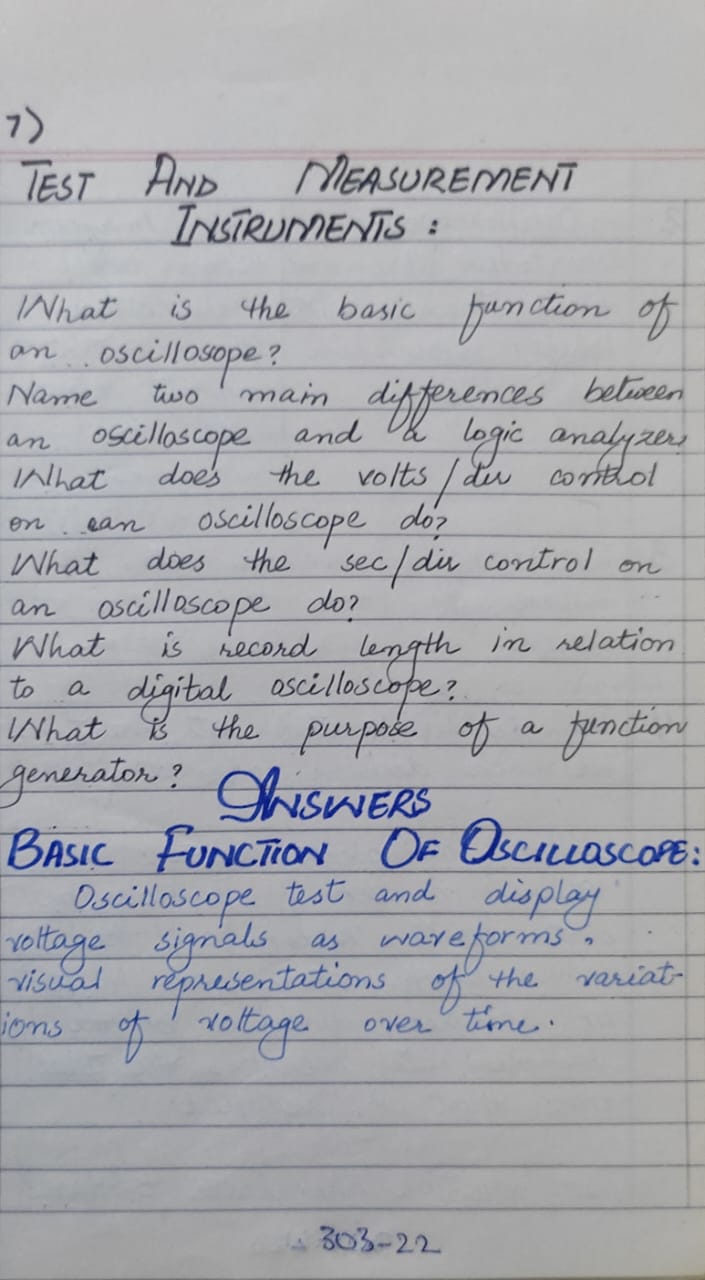 7)
TEST AND MEASUREMENT
INSTRUMENTS :
What is the basic function of
an oscillosope?
Name two main differences between
an oscilloscope and a logic analyzer?
What does the volts/div control
on can oscilloscope do?
What does the sec/div control on
an oscilloscope do?
What is record length in relation
to a digital oscilloscope?
What is the purpose of a function
generator?
ANSWERS
BASIC FUNCTION OF OSCILLOSCOPE:
Oscilloscope test and display
voltage signals as waveforms.
visual representations of the variat-
ions of voltage over time.
303-22